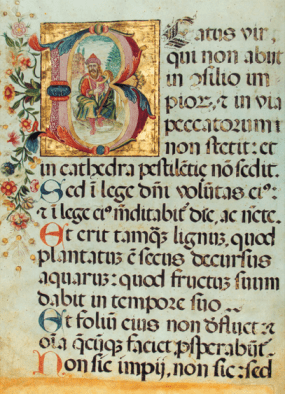 Beatus vir,
qui non abiit
in ɔsilio im
pioꝝ, ⁊ in via
peccatorum
non stetit: et
in cathedra pestilētie nō sedit.
Sed ī lege dñi volūtas eiꝰ:
⁊ ī lege eiꝰ mditabit᷑ die, ac nc̄te.
Et erit tamqꝫ lignum, quod
plantatuꝫ ē secus decursus
aquarum: quod fructuꝫ suum
dabit in tempore suo
Et foliū eius non dfluet: ⁊
oīa q̄cūqꝫ faciet ꝓsperabūt᷑.
Non sic impij, non sic: sed